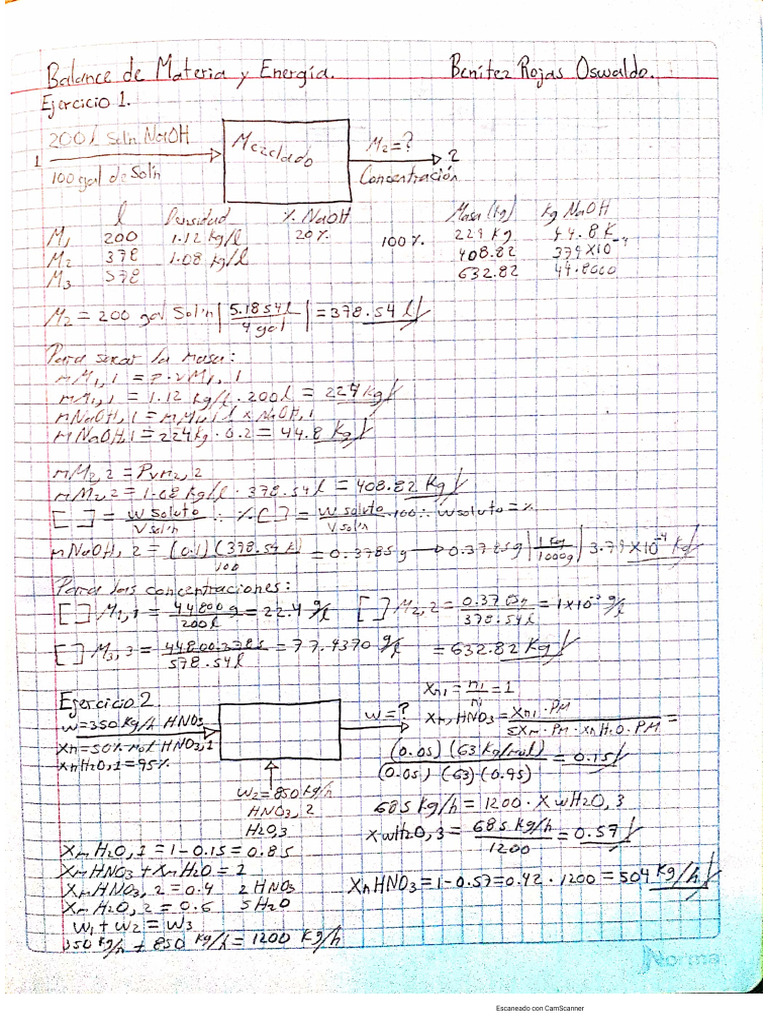 Balance de Materia y Energía. Benítez Rojas Oswaldo.
Ejercicio 1.
200 l Soln NaOH
1
100 gal de Sol'n
Mezclado
M₂=?
2
Concentración
l Densidad % NaOH Masa (Kg) Kg NaOH
M₁ 200 1.12 Kg/l 20% 100% 224 Kg 44.8 K
M₂ 378 1.08 Kg/l 408.82
M₃ 578 632.82 44.8000
M₂ = 200 gal Sol'n | 5.1854 l / 4 gal | = 378.54 l
Para sacar la masa:
mM₁,1 = P·vM₁,1
mM₁,1 = 1.12 Kg/l · 200 l = 224 Kg
mNaOH,1 = mM₁,1 x NaOH,1
mNaOH,1 = 224 Kg · 0.2 = 44.8 Kg
mM₂,2 = Pvm₂,2
mM₂,2 = 1.08 Kg/l · 378.54 l = 408.82 Kg
[ ] = w soluto / V sol'n ∴ % [ ] = w soluto / V sol'n · 100 ∴ w soluto = %
mNaOH,2 = (0.1)(378.54 l) / 100 = 0.3785 g → 0.3785 g | 1 Kg / 1000 g | 3.79 x10⁻⁴ Kg
Para las concentraciones:
[ ] M₁,1 = 44800 g / 200 l = 22.4 g/l [ ] M₂,2 = / 378.54 l = 1x10⁻³ g/l
[ ] M₃,3 = 44800.3785 / 578.54 l = 77.4370 g/l = 632.82 Kg
Ejercicio 2.
w=350 Kg/h HNO₃
Xm=50% mol HNO₃,1
XnH₂O,1=95%
w=?
w₂=850 Kg/h
HNO₃,2
H₂O,3
Xn₁ = n₁ / n = 1
Xm, HNO₃ = Xm₁·PM / ΣXm·PM·XnH₂O·PM =
(0.05)(63 Kg/mol) / (0.05)(63)·(0.95) = 0.15
685 Kg/h = 1200 · X wH₂O,3
X wH₂O,3 = 685 Kg/h / 1200 = 0.57
XmH₂O,3 = 1-0.15 = 0.85
XmHNO₃ + XmH₂O = 1
XmHNO₃,2 = 0.4 2 HNO₃
XmH₂O,2 = 0.6 5 H₂O
w₁ + w₂ = w₃
350 Kg/h + 850 Kg/h = 1200 Kg/h
XnHNO₃ = 1-0.57 = 0.42 · 1200 = 504 Kg/h
Norma
Escaneado con CamScanner